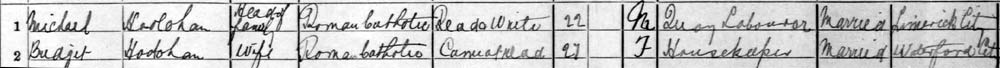 1 Michael Hoolohan Head of Family Roman Catholic Read & Write 22 M Quay Labourer Married Limerick City
2 Budget Hoolohan Wife Roman Catholic Cannot read 27 F Housekeeper Married Waterford City